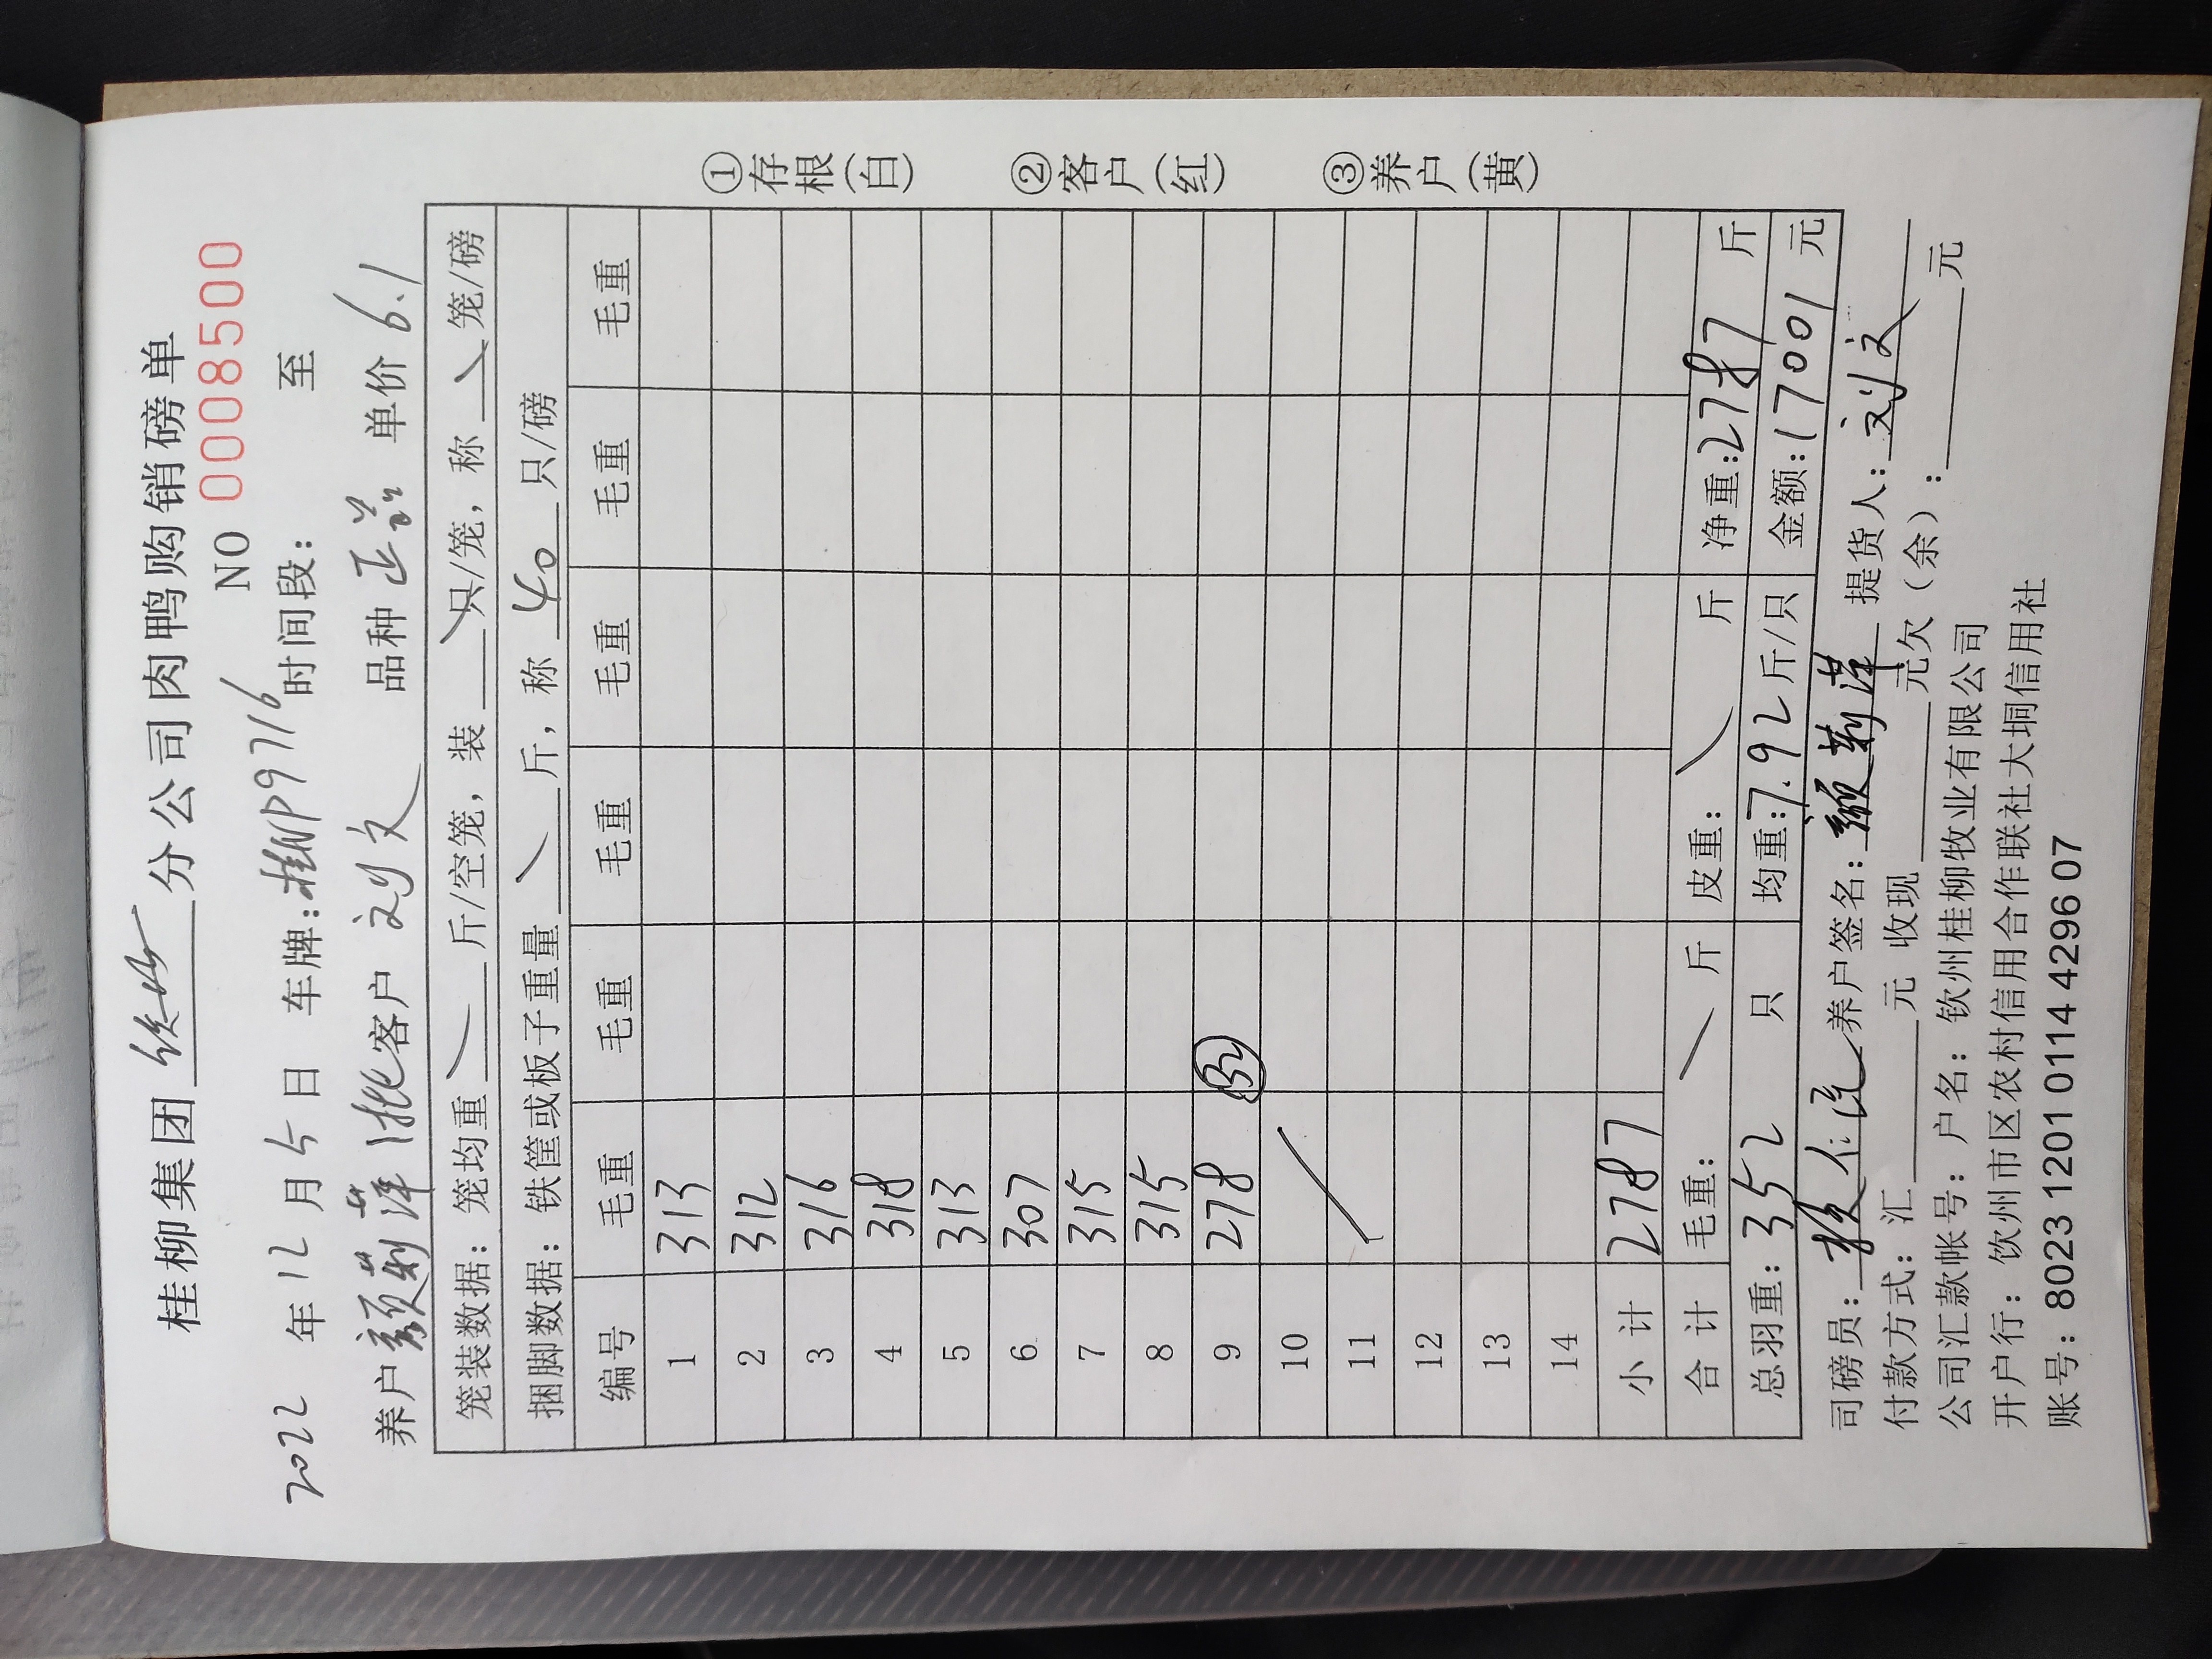 桂柳集团 分公司肉鸭购销磅单
NO 0008500
2022 年 12 月 5 日 车牌:桂NP9716 时间段: 至
养户 颜莉萍 1批 客户 刘文 品种 正 单价 6.1
笼装数据: 笼均重 斤/空笼, 装 只/笼, 称 笼/磅
捆脚数据: 铁筐或板子重量 斤, 称 40 只/磅
编号 毛重 毛重 毛重 毛重 毛重 毛重
1 313
2 312
3 316
4 318
5 313
6 307
7 315
8 315
9 278 32
10
11
12
13
14
小计 2787
合计 毛重: 斤 皮重: 斤 净重:2787 斤
总羽重: 352 只 均重:7.92 斤/只 金额:17001 元
司磅员: 养户签名: 颜莉萍 提货人: 刘文
付款方式: 汇 元 收现 元欠(余): 元
公司汇款帐号: 户名: 钦州桂柳牧业有限公司
开户行: 钦州市区农村信用合作联社大垌信用社
账号: 8023 1201 0114 4296 07
①存根(白) ②客户(红) ③养户(黄)